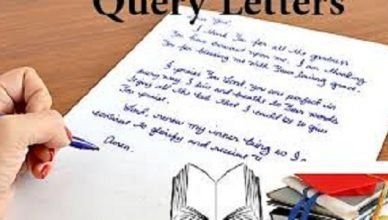 Query Letters
Dear God,
I thank You for all the goodness
You have bestowed upon me. I am thanking
You for blessing me with Your loving grace.
I praise You Lord, you are perfect in
every way. I live and breathe to Your words
I pray all the best that I could be to give
You praise.
Lord, renew my inner being so I
continue to glorify and
Amen.